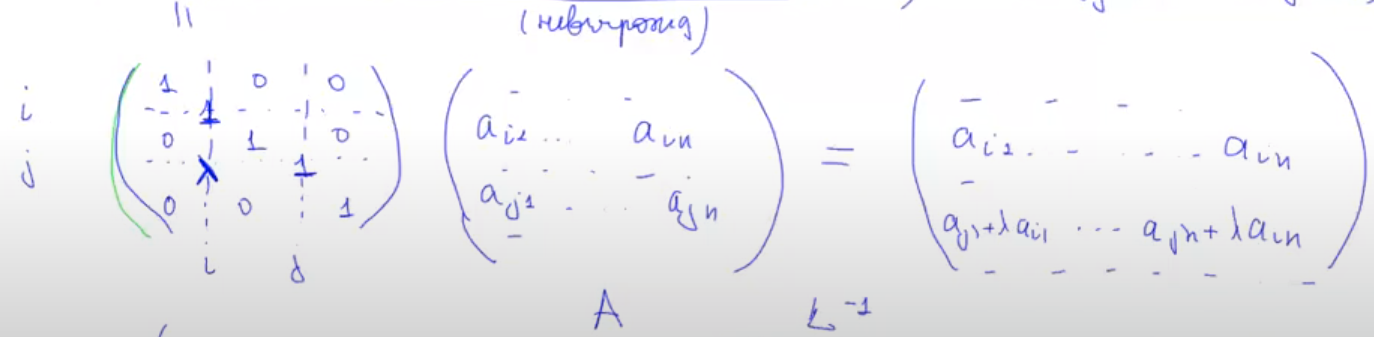 (невирожд)
1 0 0
i 1
0 1 0
j λ 1
0 0 1
i j
a_{i1} ... a_{in}
a_{j1} ... a_{jn}
=
a_{i1} ... a_{in}
a_{j1}+λa_{i1} ... a_{jn}+λa_{in}
A L^{-1}